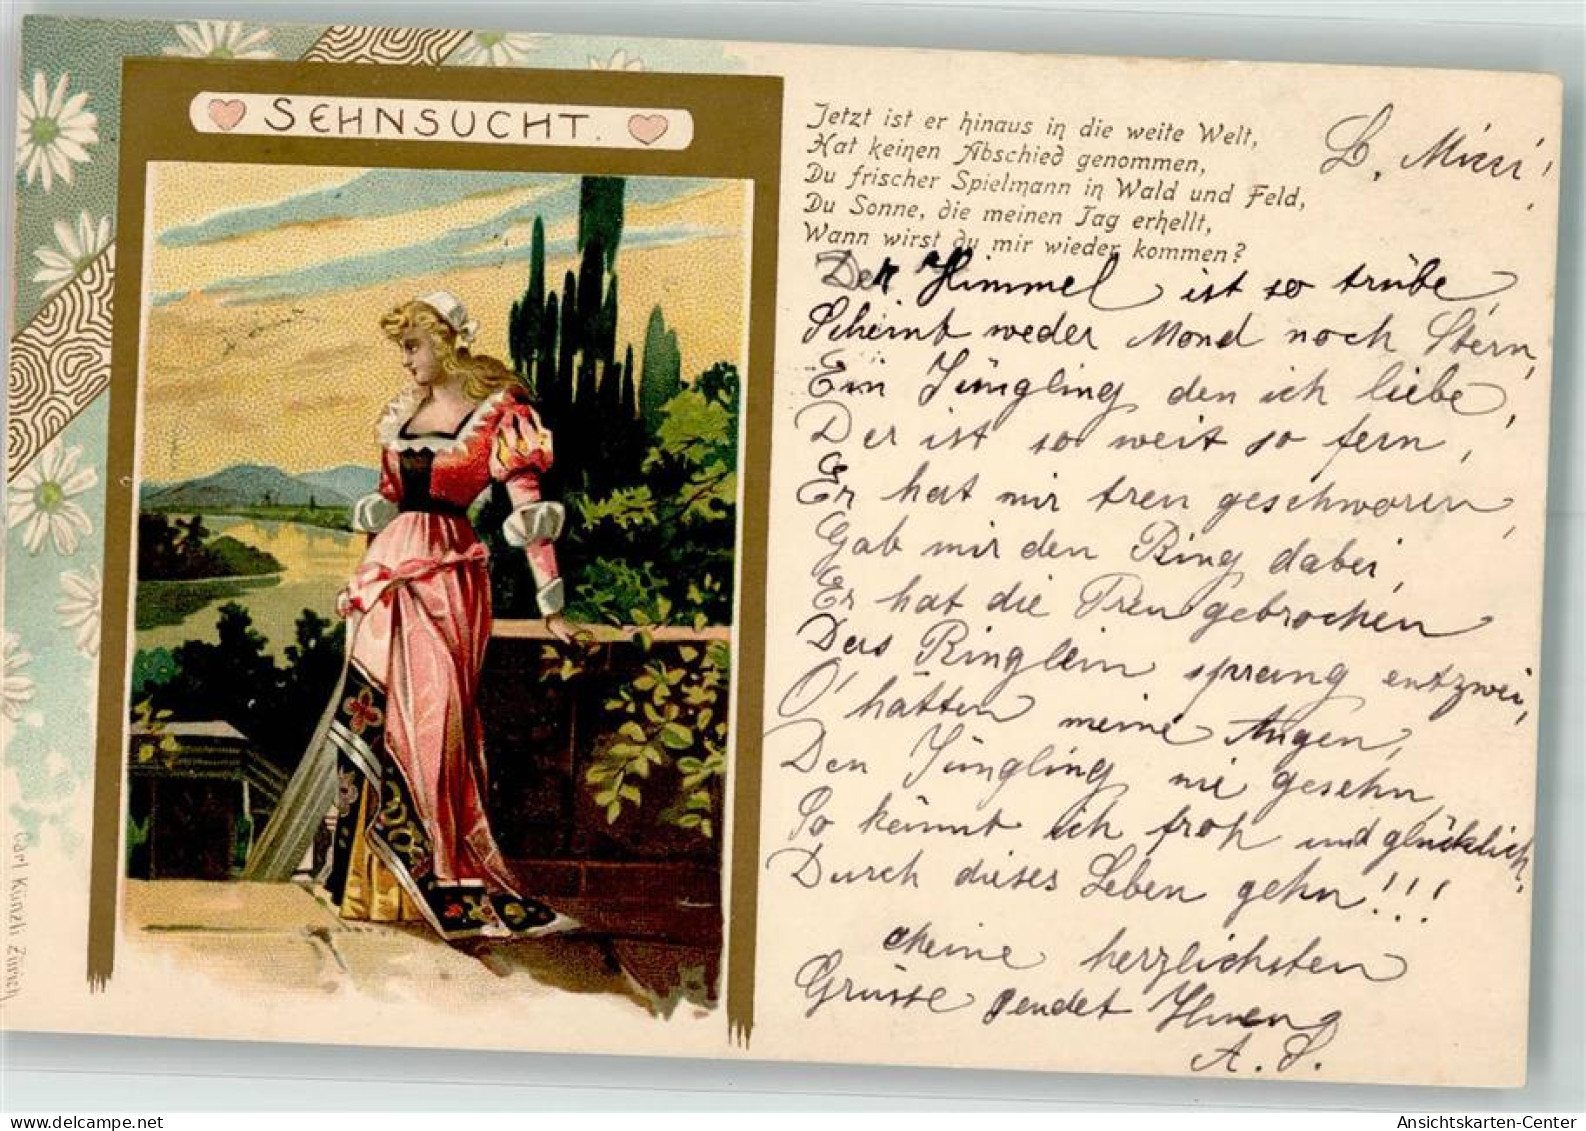 SEHNSUCHT.
Jetzt ist er hinaus in die weite Welt,
Hat keinen Abschied genommen,
Du frischer Spielmann in Wald und Feld,
Du Sonne, die meinen Tag erhellt,
Wann wirst du mir wieder kommen?
L. Mizzi!
Der Himmel ist so trübe,
Scheint weder Mond noch Stern,
Ein Jüngling den ich liebe,
Der ist so weit so fern,
Er hat mir treu geschworen,
Gab mir den Ring dabei,
Er hat die Treu gebrochen
Das Ringlein sprang entzwei,
O' hätten meine Augen,
Den Jüngling nie gesehn,
So könnt ich froh und glücklich
Durch dieses Leben gehn!!!
Meine herzlichsten
Grüsse sendet Ihnen
A. S.
Carl Künzli Zürich
delcampe.net
Ansichtskarten-Center